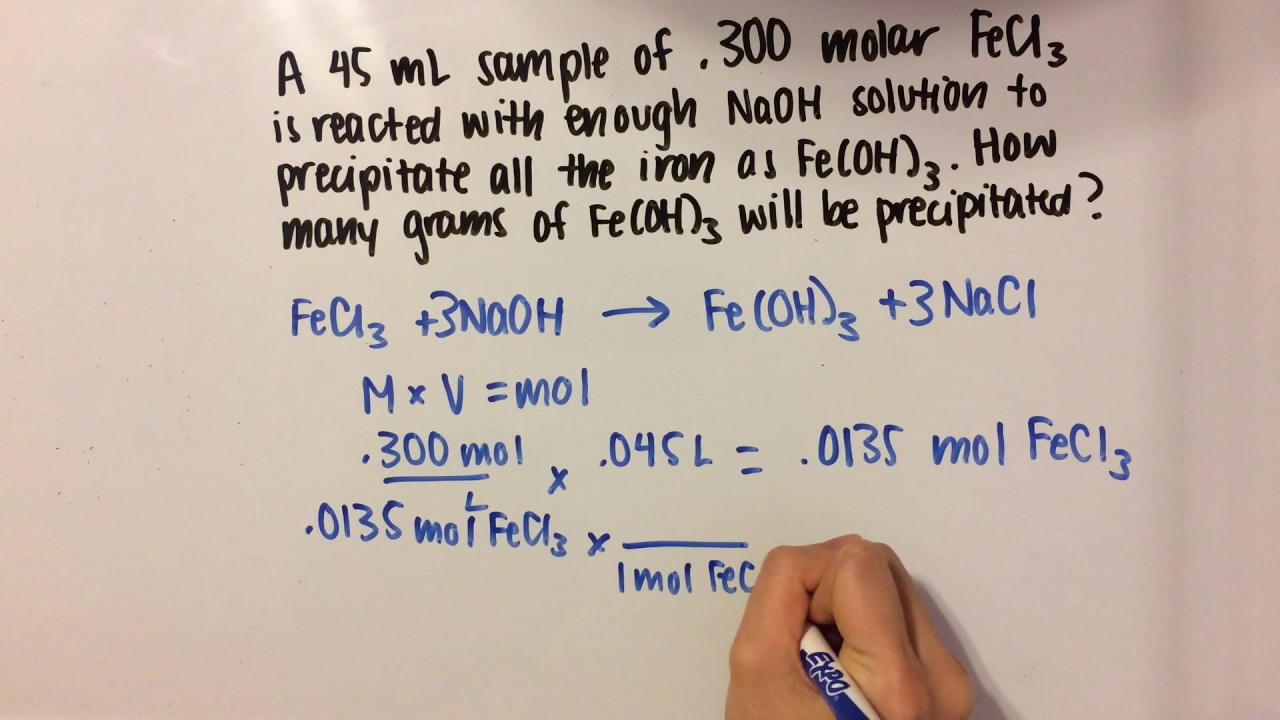 A 45 mL sample of .300 molar FeCl₃
is reacted with enough NaOH solution to
precipitate all the iron as Fe(OH)₃. How
many grams of Fe(OH)₃ will be precipitated?
FeCl₃ +3NaOH → Fe(OH)₃ +3NaCl
M × V = mol
.300 mol / L × .045L = .0135 mol FeCl₃
.0135 mol FeCl₃ × ___ / 1 mol FeC
EXPO